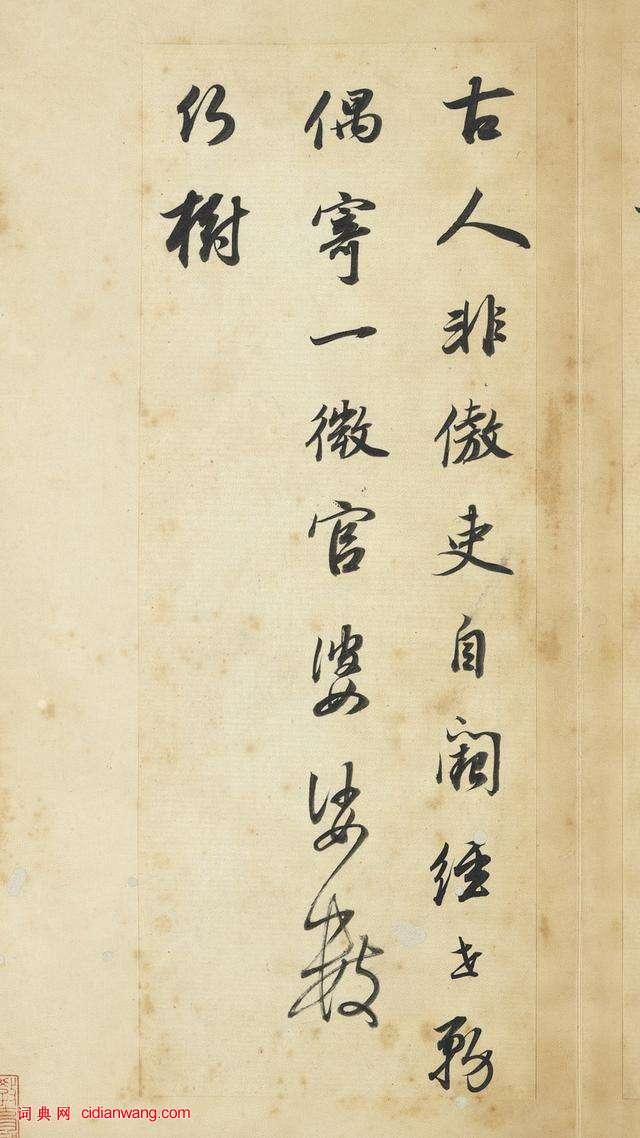 古人非傲吏自闕經世務
偶寄一微官婆娑數
行樹
词典网 cidianwang.com